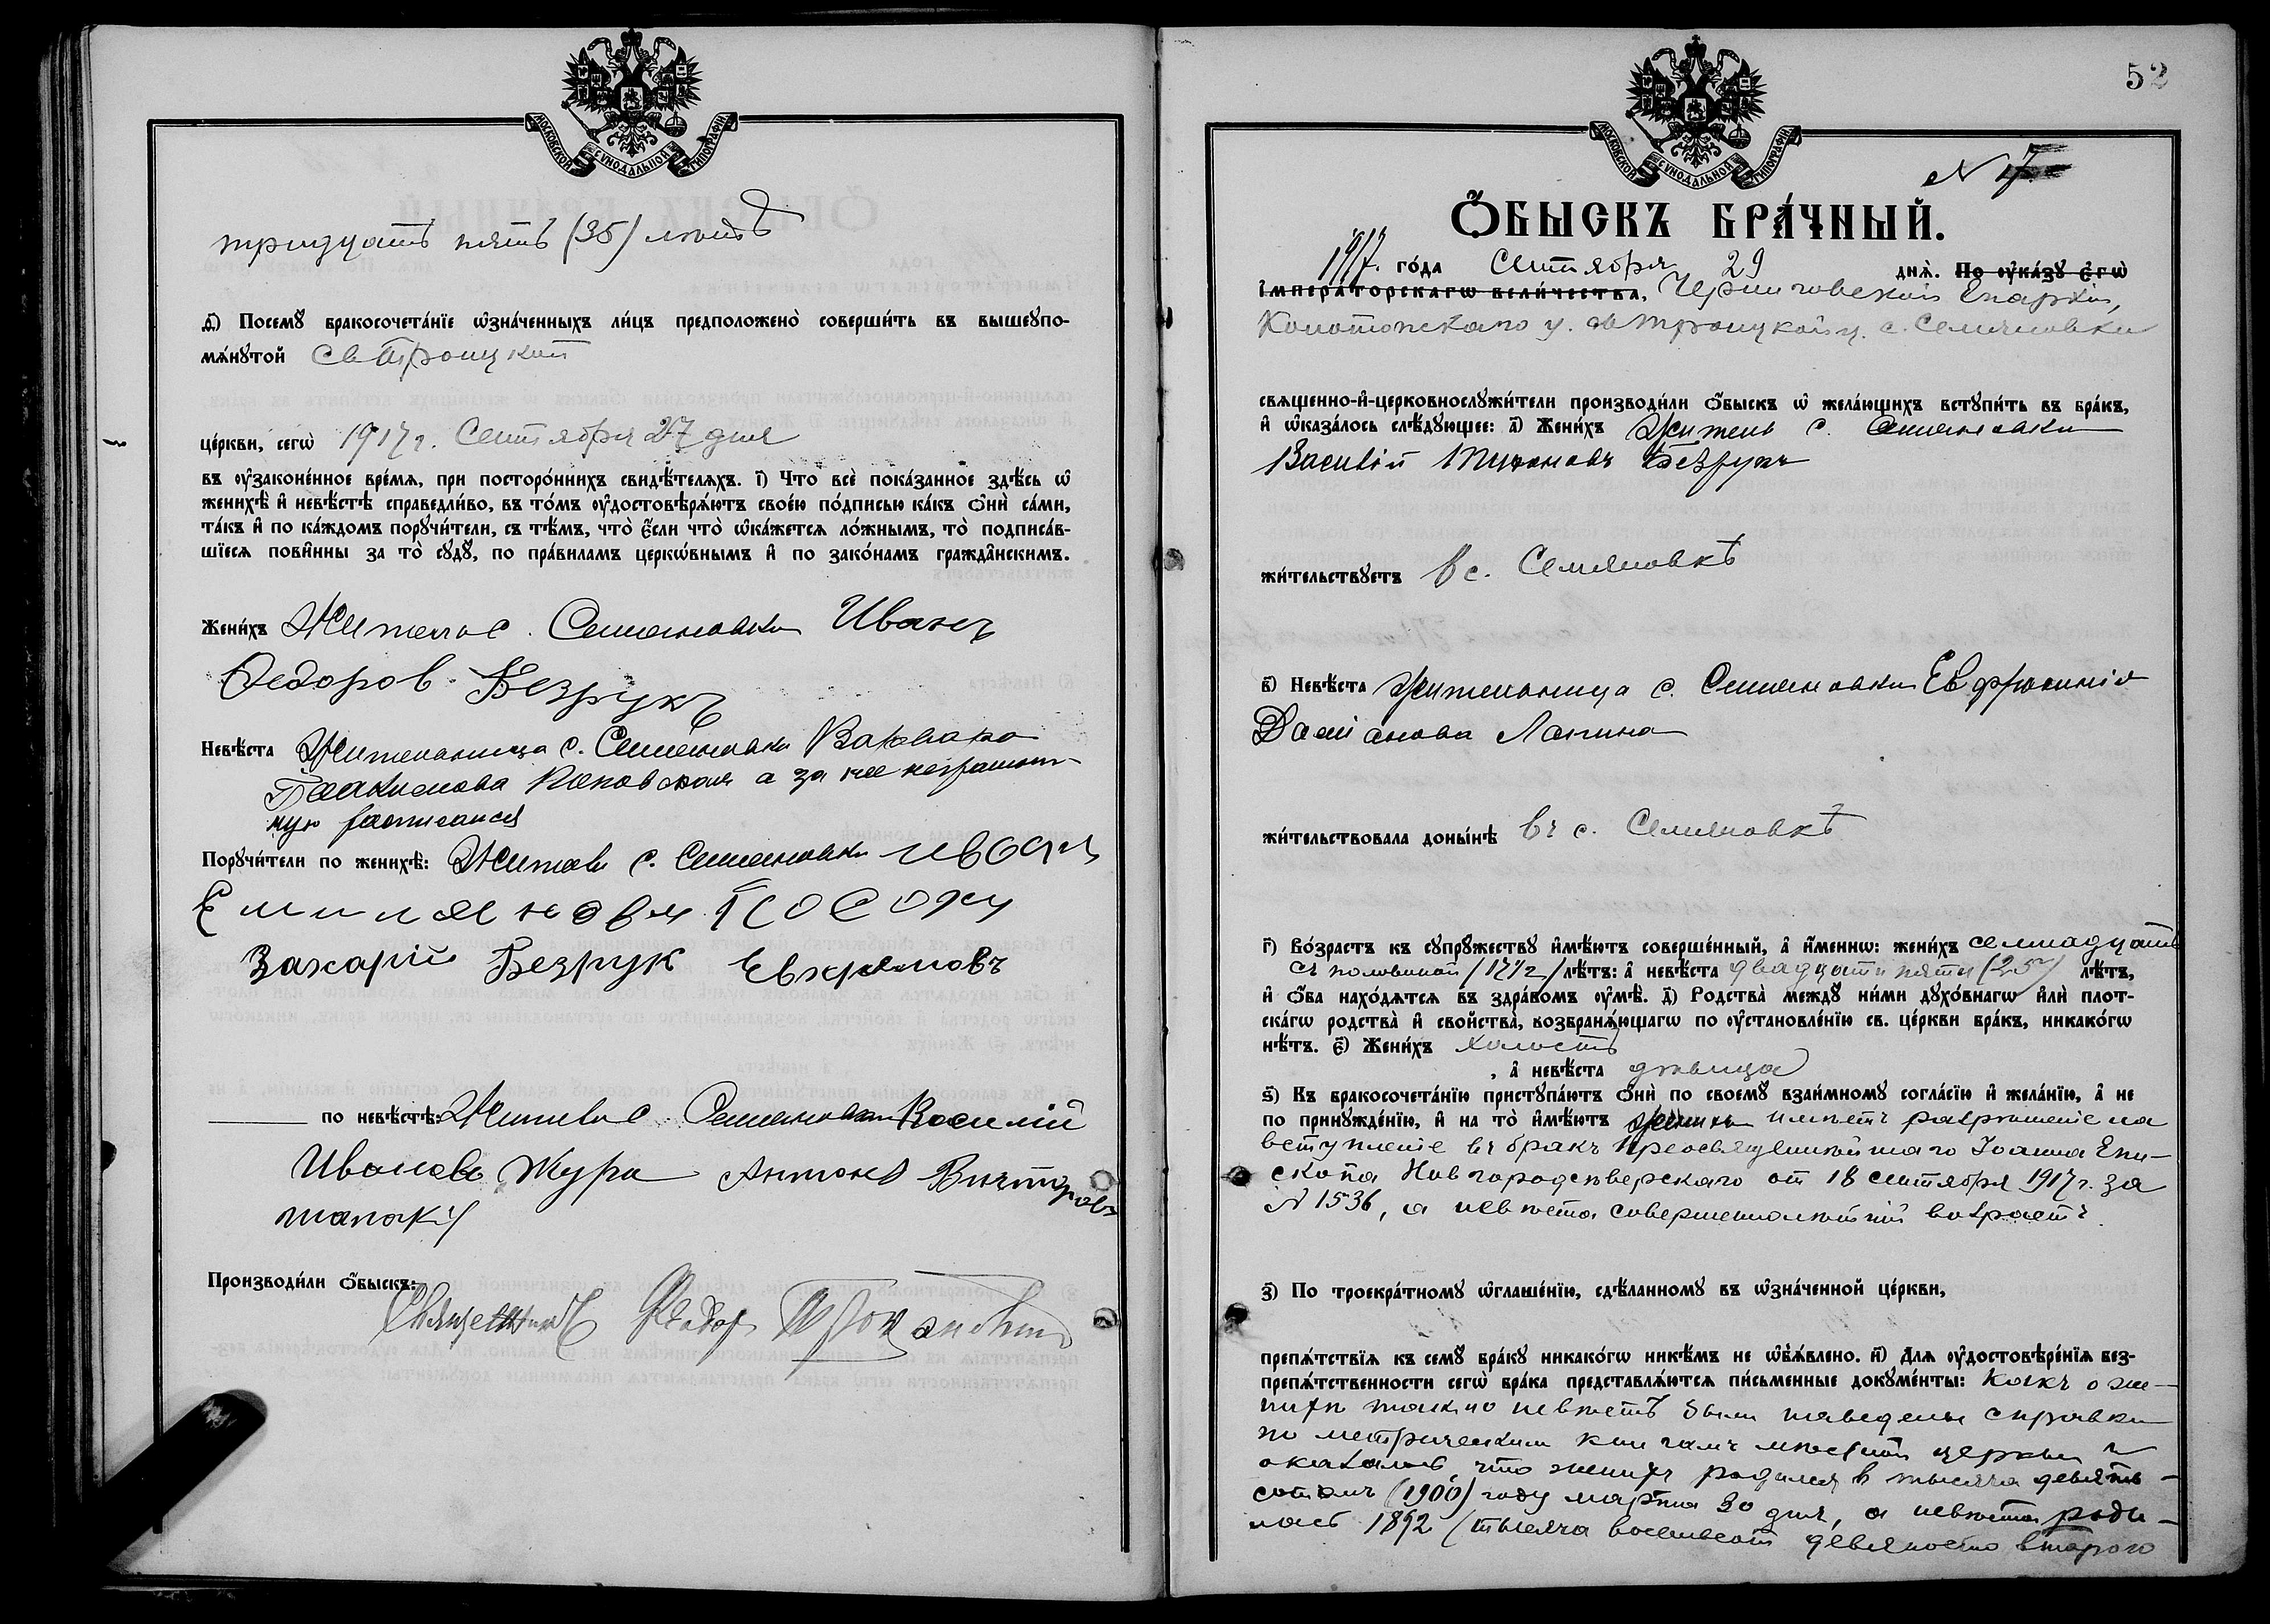 МОСКОВСКОЙ СУНОДАЛЬНОЙ ТИПОГРАФІИ
тридцать пять (35) лѣтъ
д҃) Посемꙋ бракосочета́нїе ѡ҆зна́ченныхъ ли́цъ предположено̀ соверши́ть въ вышеꙋпо-
мѧ́нꙋтой Св Троицкой
це́ркви, сегѡ̀ 1917 г. Сентября 27 дня
въ ᲂу҆законе́нное вре́мѧ, при посторо́ннихъ свидѣ́телѧхъ. і҃) Что всѐ пока́занное здѣ́сь ѡ҆
женихѣ̀ и҆ невѣ́стѣ справедли́во, въ то́мъ ᲂу҆достовѣрѧ́ютъ свое́ю по́дписью ка́къ ѻ҆нѝ са́ми,
та́къ и҆ по ка́ждомъ порꙋчи́тели, съ тѣ́мъ, что̀ є҆́сли что̀ ѡ҆ка́жетсѧ ло́жнымъ, то̀ подписа́в-
шїесѧ пови́нны за то̀ сꙋдꙋ̀, по пра́виламъ церкѡ́внымъ и҆ по зако́намъ гражда́нскимъ.
Жени́хъ Житель с. Семяновки Иванъ
Федоров Безрукъ
Невѣ́ста Жительница с. Семяновки Варвара
а за нее неграмот-
ную расписался
Порꙋчи́тели по женихѣ̀: Житель с. Семяновки Иван
Емиляновъ
Захарій Безрук Евхремовъ
по невѣ́стѣ: Житель с. Семяновки Василій
Иванов Жура Антонъ Викторовъ
Производи́ли ѻ҆́быскъ:
Священникъ Феодор
52
МОСКОВСКОЙ СУНОДАЛЬНОЙ ТИПОГРАФІИ
N 7
Ѻ҆́БЫСКЪ БРА́ЧНЫЙ.
1917. го́да Сентября 29 днѧ̀. По ᲂу҆ка́зꙋ є҆гѡ̀
і҆мпера́торскагѡ вели́чества, Черниговской Епархіи,
Конотопскаго у. св Троицкой ц. с. Семяновки
свѧщенно-и҆-церковнослꙋжи́тели производи́ли ѻ҆́быскъ ѡ҆ жела́ющихъ встꙋпи́ть въ бра́къ,
и҆ ѡ҆каза́лось слѣ́дꙋющее: а҃) Жени́хъ Житель с. Семяновки
Василій Тихоновъ Безрукъ
жи́тельствꙋетъ в с. Семяновкѣ
в҃) Невѣ́ста Жительница с. Семяновки Евфросинія
Даміанова Лапина
жи́тельствовала доны́нѣ въ с. Семяновкѣ
г҃) Во́зрастъ къ сꙋпрꙋ́жествꙋ и҆мѣ́ютъ соверше́нный, а҆ и҆́меннѡ: жени́хъ семнадцать
съ половиной (17 1/2) лѣ́тъ: а҆ невѣ́ста двадцати пяти (25) лѣ́тъ,
и҆ ѻ҆́ба нахо́дѧтсѧ въ здра́вомъ ᲂу҆мѣ̀. д҃) Родства̀ междꙋ̀ ни́ми дꙋхо́внагѡ и҆лѝ плот-
ска́гѡ родства̀ и҆ свойства̀, возбранѧ́ющагѡ по ᲂу҆становле́нїю св. це́ркви бра́къ, никако́гѡ
нѣ́тъ. є҃) Жени́хъ холостъ
, а҆ невѣ́ста дѣвица
ѕ҃) Къ бракосочета́нїю пристꙋпа́ютъ ѻ҆нѝ по своемꙋ̀ взаи́мномꙋ согла́сїю и҆ жела́нїю, а҆ не
по принꙋжде́нїю, и҆ на то̀ и҆мѣ́ютъ женихъ имѣетъ разрѣшеніе на
вступленіе въ бракъ Преосвященнѣйшаго Іоанна Епи-
скопа Новгородсѣверскаго от 18 сентября 1917 г. за
N 1536, а невѣста совершеннолѣтній возрастъ.
з҃) По троекра́тномꙋ ѡ҆глаше́нїю, сдѣ́ланномꙋ въ ѡ҆зна́ченной це́ркви,
препѧ́тствїѧ къ семꙋ̀ бра́кꙋ никако́гѡ никѣ́мъ не ѡ҆б̾ѧ́влено. и҃) Длѧ ᲂу҆достовѣре́нїѧ без-
препѧ́тственности сегѡ̀ бра́ка представлѧ́ютсѧ пи́сьменные докꙋме́нты: Какъ о же-
нихѣ такъ и о невѣстѣ были наведены справки
по метрическим книгамъ мѣстной церкви и
оказалось, что женихъ родился в тысяча девять-
сотомъ (1900) году марта 30 дня, а невѣста роди-
лась 1892 (тысяча восемьсот девяносто второго